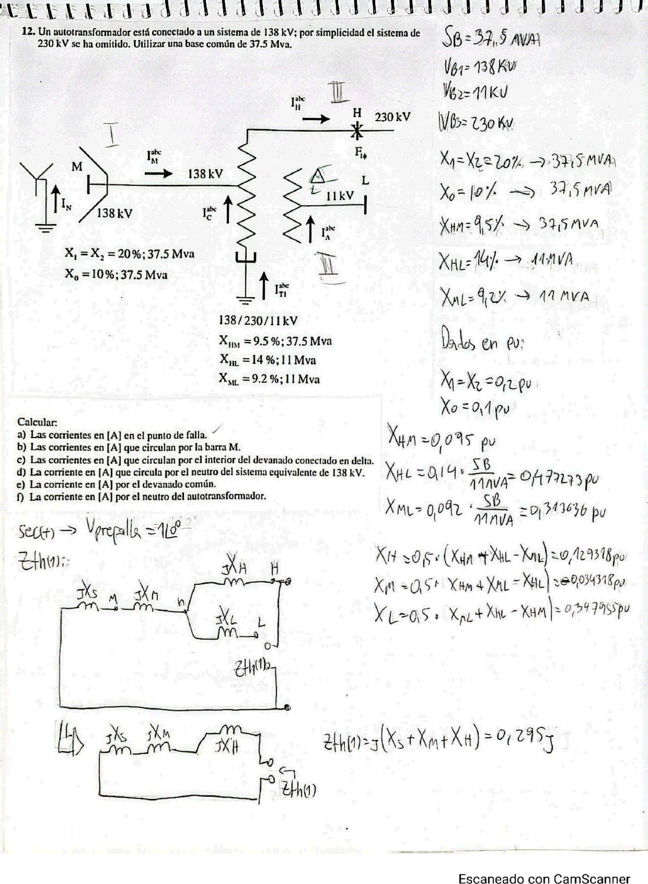 12. Un autotransformador está conectado a un sistema de 138 kV; por simplicidad el sistema de
230 kV se ha omitido. Utilizar una base común de 37.5 Mva.
SB = 37,5 MVA
VB1 = 138 KV
VB2 = 11 KV
VB3 = 230 KV
I
III
I_H^abc
H
230 kV
F_1ϕ
M
I_M^abc
138 kV
I_N
138 kV
I_C^abc
Δ
L
11 kV
I_A^abc
II
I_TI^abc
X₁ = X₂ = 20%; 37.5 Mva
X₀ = 10%; 37.5 Mva
138/230/11 kV
X_HM = 9.5 %; 37.5 Mva
X_HL = 14 %; 11 Mva
X_ML = 9.2 %; 11 Mva
X1 = X2 = 20% → 37,5 MVA
X0 = 10% → 37,5 MVA
XHM = 9,5% → 37,5 MVA
XHL = 14% → 11 MVA
XML = 9,2% → 11 MVA
Datos en pu:
X1 = X2 = 0,2 pu
X0 = 0,1 pu
Calcular:
a) Las corrientes en [A] en el punto de falla.
b) Las corrientes en [A] que circulan por la barra M.
c) Las corrientes en [A] que circulan por el interior del devanado conectado en delta.
d) La corriente en [A] que circula por el neutro del sistema equivalente de 138 kV.
e) La corriente en [A] por el devanado común.
f) La corriente en [A] por el neutro del autotransformador.
XHM = 0,095 pu
XHL = 0,14 · SB/11MVA = 0,477273 pu
XML = 0,092 · SB/11MVA = 0,313636 pu
Sec(+) → Vprefalla = 1∟0°
Zth(1):
XH = 0,5 · (XHM + XHL - XML) = 0,129318 pu
XM = 0,5 · (XHM + XML - XHL) = -0,034318 pu
XL = 0,5 · (XML + XHL - XHM) = 0,347955 pu
jXS
M
jXM
n
jXH
H
jXL
L
Zth(1)
jXS
jXM
jXH
Zth(1)
Zth(1) = j(XS + XM + XH) = 0,295j
Escaneado con CamScanner